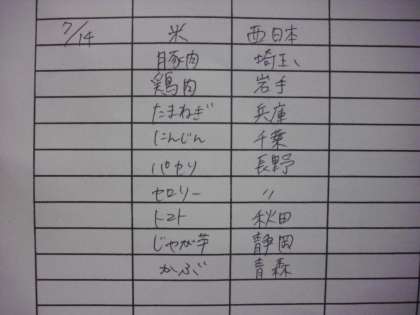 7/14 米 西日本
豚肉 埼玉、
鶏肉 岩手
たまねぎ 兵庫
にんじん 千葉
パセリ 長野
セロリー 〃
トマト 秋田
じゃが芋 静岡
かぶ 青森